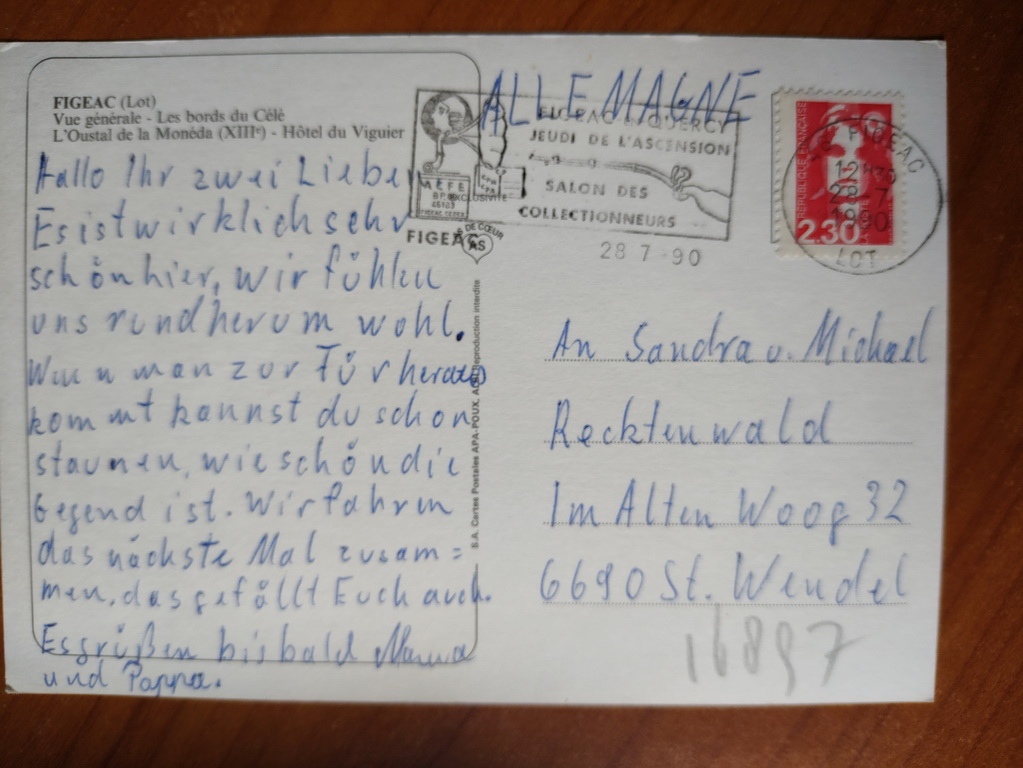 FIGEAC (Lot)
Vue générale - Les bords du Célé
L'Oustal de la Monéda (XIIIᵉ) - Hôtel du Viguier
Hallo Ihr zwei Lieben
Es ist wirklich sehr
schön hier, wir fühlen
uns rundherum wohl.
Wenn man zur Tür heraus
kommt kannst du schon
staunen, wie schön die
Gegend ist. Wir fahren
das nächste Mal zusam=
men, das gefällt Euch auch.
Es grüßen bis bald Mama
und Pappa.
ALLEMAGNE
FIGEAC EN QUERCY
JEUDI DE L'ASCENSION
SALON DES
COLLECTIONNEURS
FIGEAC
28 7 -90
AS DE CŒUR
AS
EXCLUSIVITÉ
S.A. Cartes Postales APA-POUX, Reproduction interdite
RÉPUBLIQUE FRANÇAISE
2.30
46 FIGEAC
28-7
1990
LOT
An Sandra u. Michael
Recktenwald
Im Alten Woog 32
6690 St. Wendel
16897